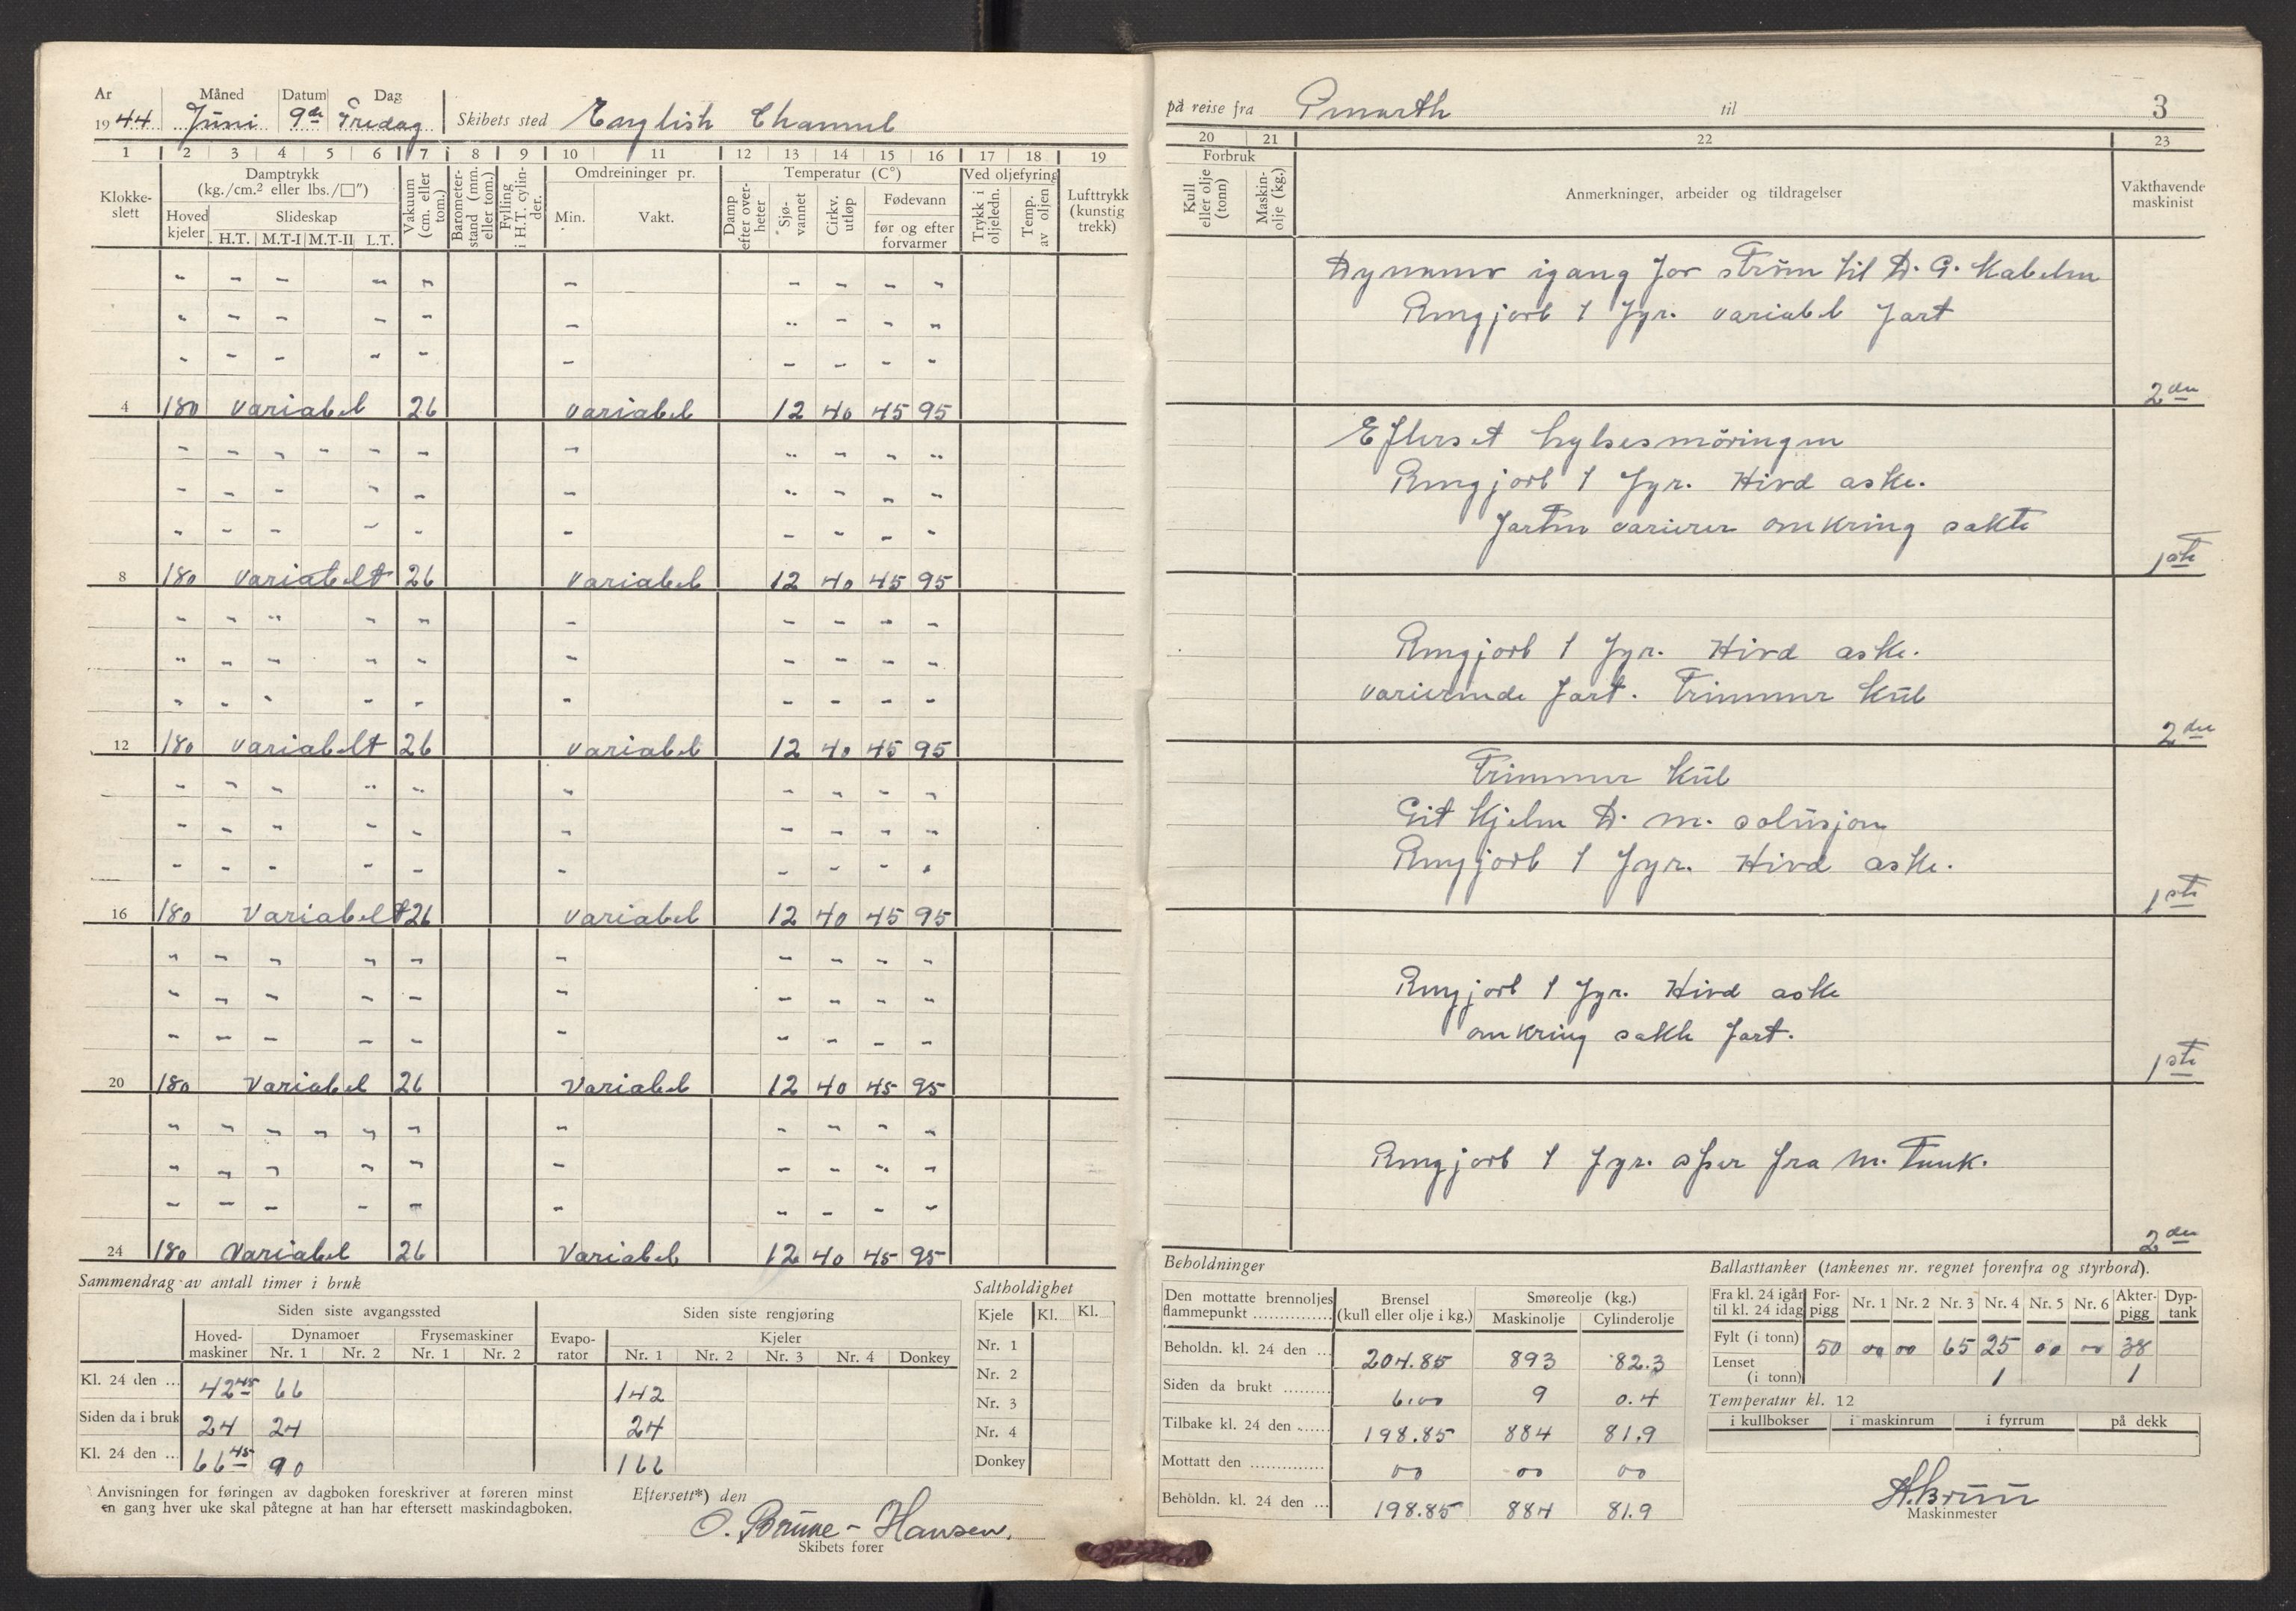 År Måned Datum Dag
1944 Juni 9de Fredag Skibets sted English Channel
1 2 3 4 5 6 7 8 9 10 11 12 13 14 15 16 17 18 19
Klokke-slett
Damptrykk (kg./cm.² eller lbs./□")
Hoved kjeler
Slideskap
H.T. M.T-I M.T-II L.T.
Vakuum (cm. eller tom.)
Barometer-stand (mm. eller tom.)
Fylling i H.T. cylin-der.
Omdreininger pr.
Min. Vakt.
Temperatur (C°)
Damp efter over-heter
Sjø-vannet
Cirkv. utløp
Fødevann
før og efter forvarmer
Ved oljefyring
Trykk i oljeledn.
Temp. av oljen
Lufttrykk (kunstig trekk)
4 180 variabel 26 variabel 12 40 45 95
8 180 variabelt 26 variabel 12 40 45 95
12 180 variabelt 26 variabel 12 40 45 95
16 180 variabelt 26 variabel 12 40 45 95
20 180 variabel 26 variabel 12 40 45 95
24 180 variabel 26 variabel 12 40 45 95
Sammendrag av antall timer i bruk
Siden siste avgangssted Siden siste rengjøring
Hoved-maskiner Dynamoer Frysemaskiner Evapo-rator Kjeler
Nr. 1 Nr. 2 Nr. 1 Nr. 2 Nr. 1 Nr. 2 Nr. 3 Nr. 4 Donkey
Kl. 24 den ... 42 45 66 142
Siden da i bruk 24 24 24
Kl. 24 den ... 66 45 90 166
Saltholdighet
Kjele Kl. Kl.
Nr. 1
Nr. 2
Nr. 3
Nr. 4
Donkey
Anvisningen for føringen av dagboken foreskriver at føreren minst
en gang hver uke skal påtegne at han har eftersett maskindagboken.
Eftersett*) den
O. Brune-Hansen.
Skibets fører
på reise fra til 3
20 21 22 23
Forbruk
Kull eller olje (tonn)
Maskin-olje (kg.)
Anmerkninger, arbeider og tildragelser
Vakthavende maskinist
Dynamo igang for strøm til D. G. Kabelen
Rengjort 1 fyr. variabel fart
2den
Efterset hylsesmøringen
Rengjort 1 fyr. Hivd aske.
farten varierer omkring sakte
1ste
Rengjort 1 fyr. Hivd aske.
varierende fart. Trimmer kul
2den
Trimmer kul
Git kjelen D. M. solusjon
Rengjort 1 fyr. Hivd aske.
1ste
Rengjort 1 fyr. Hivd aske
omkring sakte fart.
1ste
Rengjort 1 fyr. fra M. Tank.
2den
Beholdninger
Den mottatte brennoljes flammepunkt ...............
Brensel (kull eller olje i kg.)
Smøreolje (kg.)
Maskinolje Cylinderolje
Beholdn. kl. 24 den ... 204.85 893 82.3
Siden da brukt ......... 6.00 9 0.4
Tilbake kl. 24 den ...... 198.85 884 81.9
Mottatt den .............. 00 00 00
Beholdn. kl. 24 den ... 198.85 884 81.9
Ballasttanker (tankenes nr. regnet forenfra og styrbord).
Fra kl. 24 igår til kl. 24 idag For-pigg Nr. 1 Nr. 2 Nr. 3 Nr. 4 Nr. 5 Nr. 6 Akter-pigg Dyp-tank
Fylt (i tonn) 50 00 00 65 25 00 00 38
Lenset (i tonn) 1 1
Temperatur kl. 12
i kullbokser i maskinrum i fyrrum på dekk
A. Bruu
Maskinmester